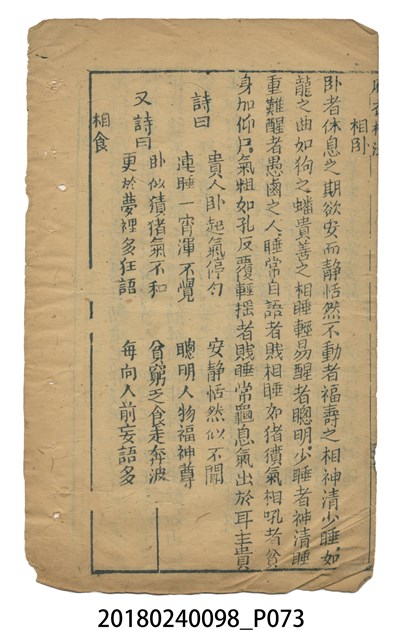 相卧
卧者休息之期欲安而靜恬然不動者福壽之相神清少睡如
龍之曲如狗之蟠貴善之相睡輕易醒者聰明少睡者神清睡
重難醒者愚鹵之人睡常自語者賎相睡如猪獖氣相吼者貧
身加仰尸氣粗如孔反覆輕揺者賎睡常龜息氣出於耳主貴
詩曰
貴人卧起氣停勻 安静恬然似不聞
連睡一宵渾不覺 聰明人物福神尊
又詩曰
卧似獖猪氣不和 貧窮乏食走奔波
更於夢裡多狂語 每向人前妄語多
相食
20180240098_P073